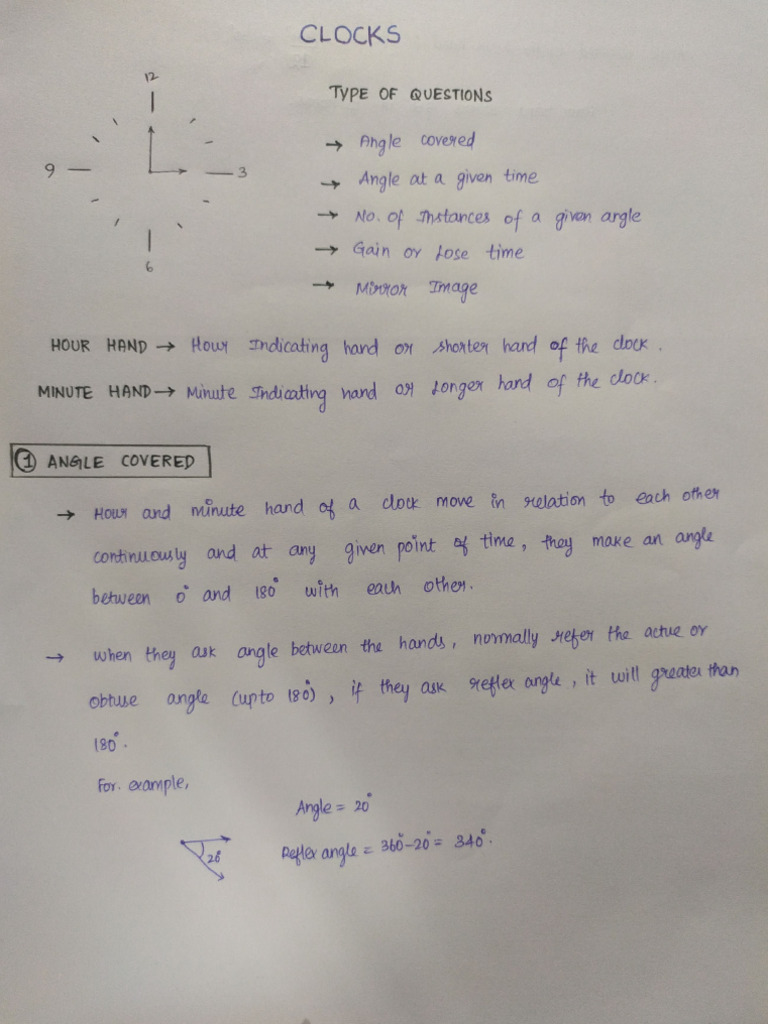 CLOCKS
12
9
3
6
TYPE OF QUESTIONS
→ Angle covered
→ Angle at a given time
→ No. of Instances of a given angle
→ Gain or Lose time
→ Mirror Image
HOUR HAND → Hour Indicating hand or shorter hand of the clock.
MINUTE HAND → Minute Indicating hand or Longer hand of the clock.
① ANGLE COVERED
→ Hour and minute hand of a clock move in relation to each other
continuously and at any given point of time, they make an angle
between 0° and 180° with each other.
→ when they ask angle between the hands, normally refer the actue or
obtuse angle (upto 180°), if they ask reflex angle, it will greater than
180°.
For. example,
Angle = 20°
20°
Reflex angle = 360°-20° = 340°.